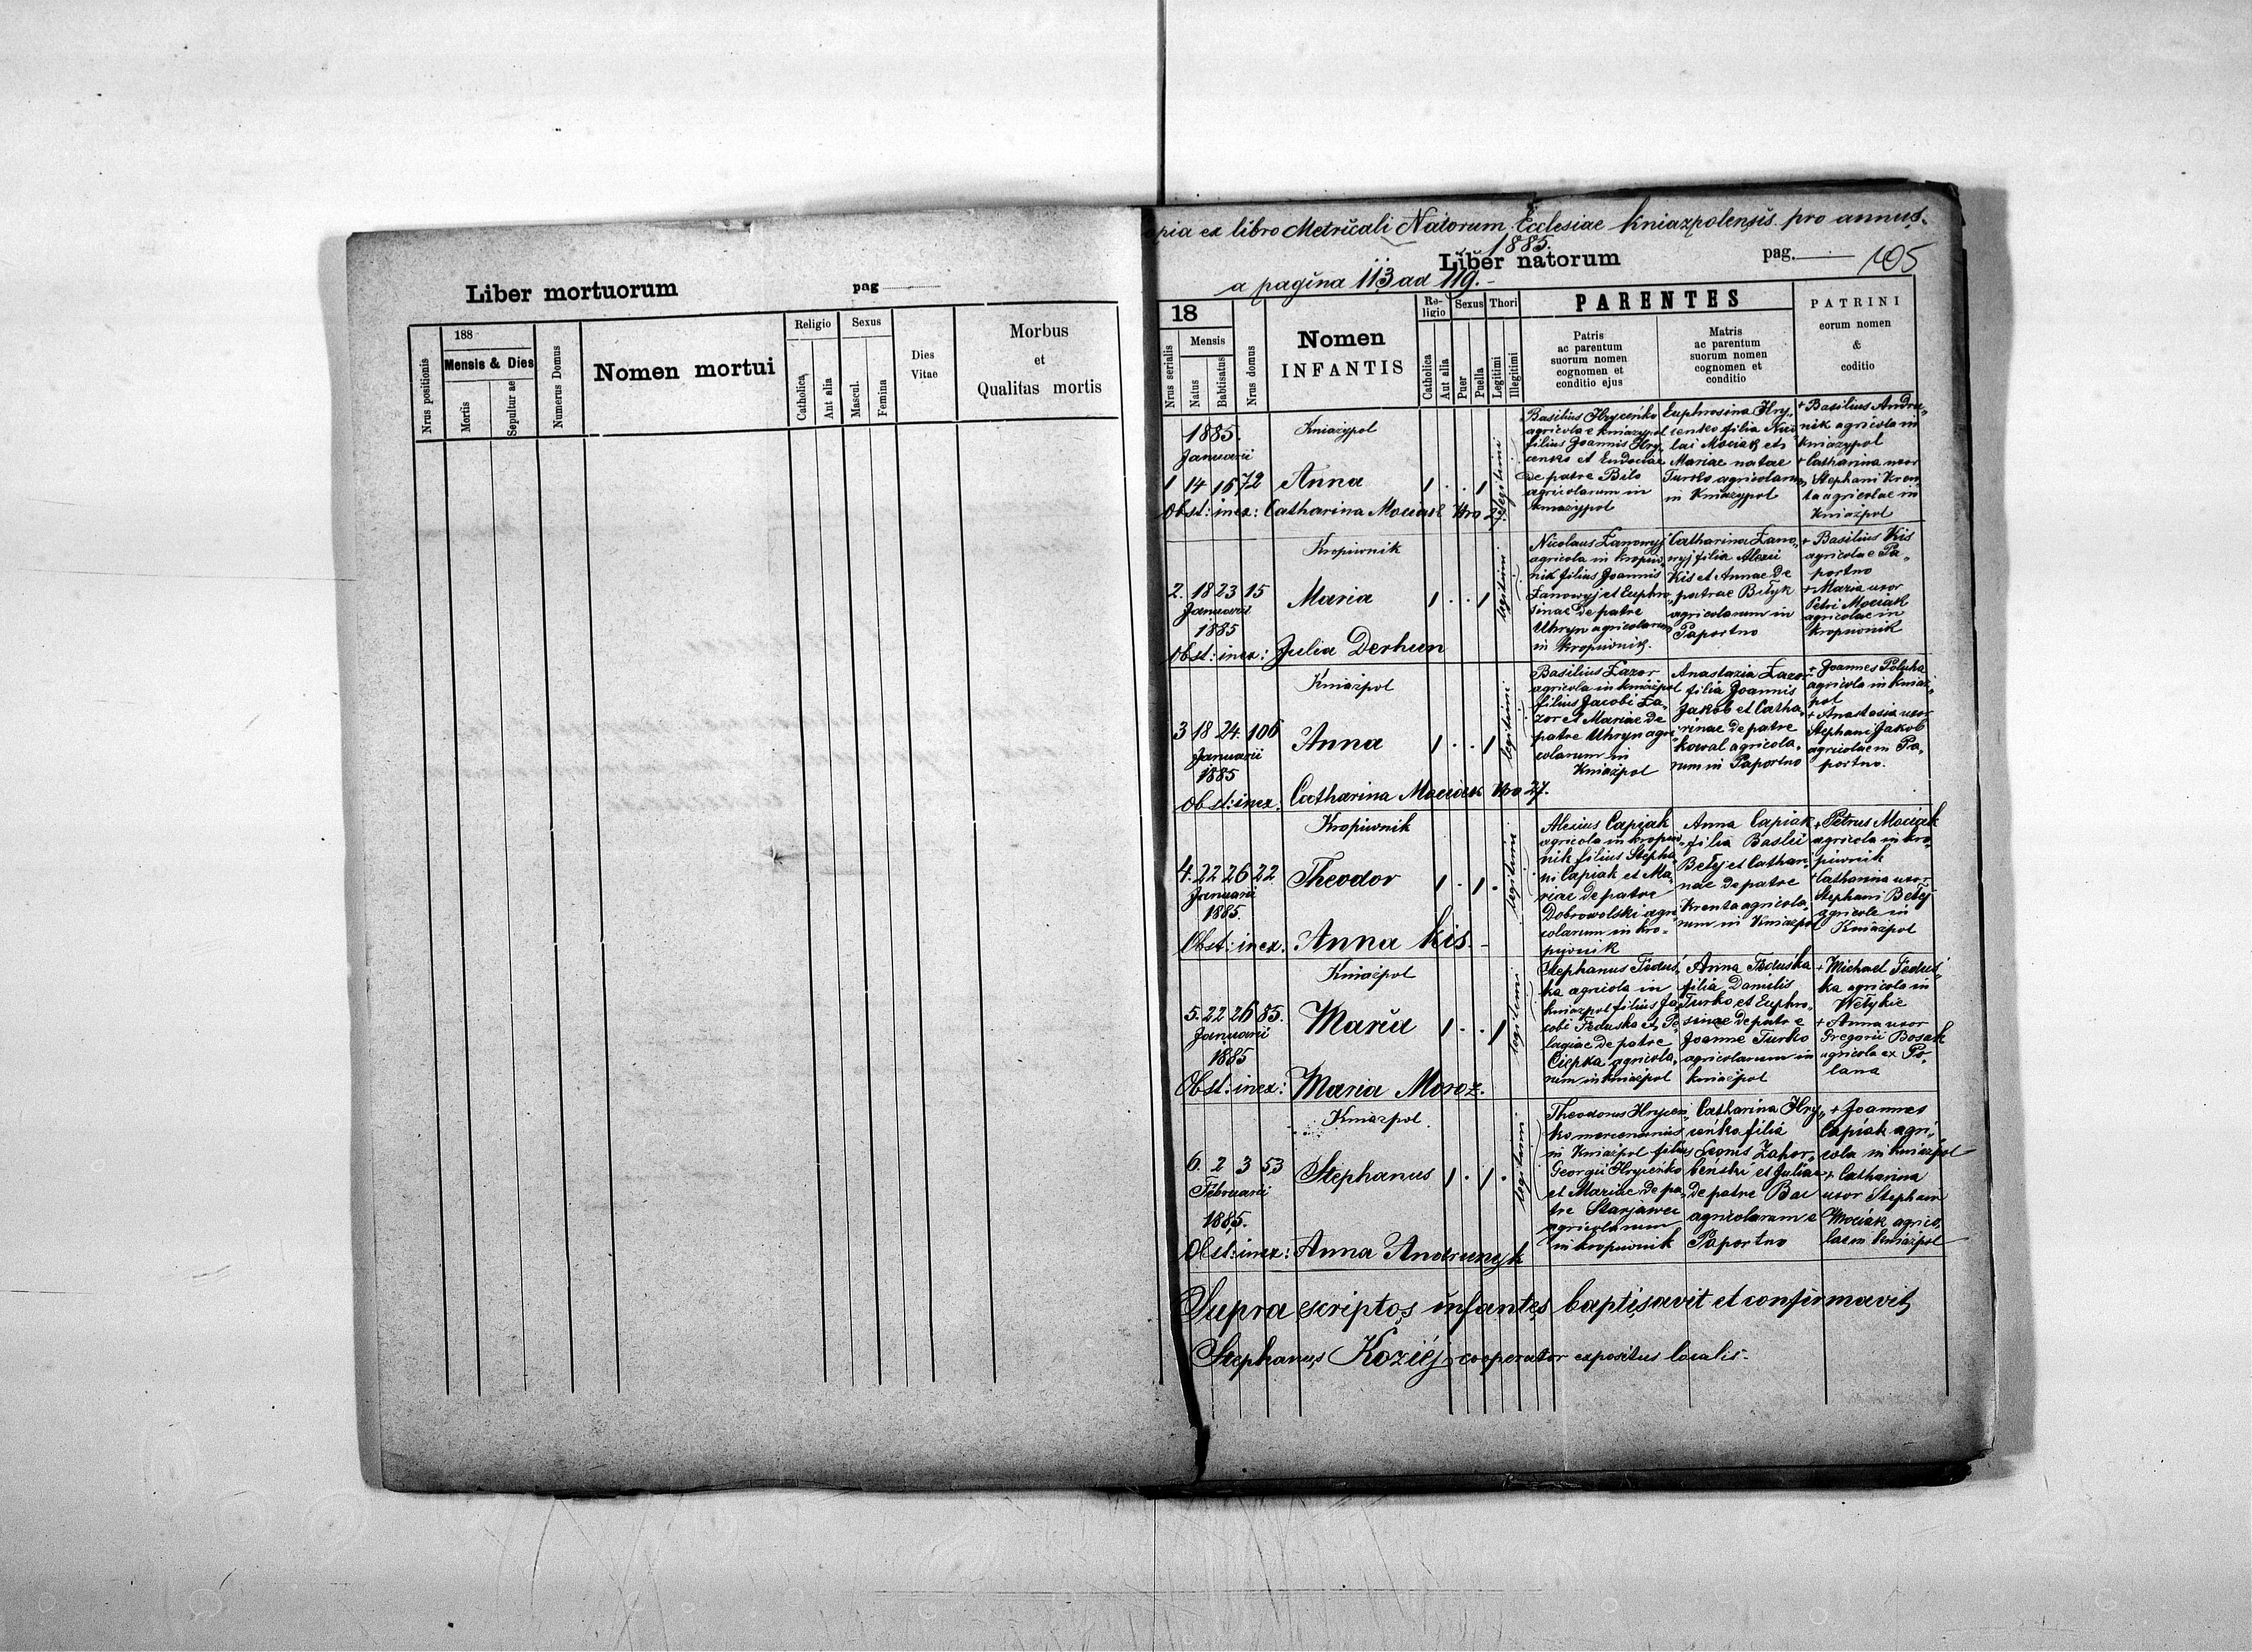 Liber mortuorum
pag
Nrus positionis
188
Mensis & Dies
Mortis
Sepultur ae
Numerus Domus
Nomen mortui
Religio
Catholica
Aut alia
Sexus
Mascul.
Femina
Dies
Vitae
Morbus
et
Qualitas mortis
opia ex libro Metricali Natorum Ecclesiae Kniazpolensis pro annus
1885.
Liber natorum
pag.
105
a pagina 113 ad 119.-
18
Nrus serialis
Mensis
Natus
Babtisatus
Nrus domus
Nomen
INFANTIS
Re-
ligio
Catholica
Aut alia
Sexus
Puer
Puella
Thori
Legitimi
Illegitimi
PARENTES
Patris
ac parentum
suorum nomen
cognomen et
conditio ejus
Matris
ac parentum
suorum nomen
cognomen et
conditio
PATRINI
eorum nomen
&
coditio
1885.
Januarii
1 14 16 72
Kniazypol
Anna
1 . . 1
legitimi
Basilius Hryceńko
agricola e Kniazypol
filius Joannis Hry„
cenko et Eudociae
de patre Bilo
agricolarum in
Kniazypol
Euphrosina Hry„
cenko filia Nico
lai Mociak et
Mariae natae
Turko agricolarum
in Kniazypol
+ Basilius Andru„
nik agricola in
Kniazypol
+ Catharina uxor
Stephani Kren
ta agricolae in
Kniażpol
Obst: inex: Catharina Mociak Nro 27.
Kropiwnik
2. 18 23 15
Januarii
1885
Maria
1 . . 1
legitimi
Nicolaus Łanowyj
agricola in Kropiw„
nik filius Joannis
Łanowyj et Euphro„
sinae de patre
Uhryn agricolarum
in Kropiwnik.
Catharina Łano„
wyj filia Alexii
Kis et Annae de
patrae Biłyk
agricolarum in
Paportno
+ Basilius Kis
agricola e Pa„
portno
+ Maria uxor
Petri Mociak
agricolae in
Kropiwnik
Obst: inex: Julia Derhun
Kniażpol
3 18 24 106
Januarii
1885
Anna
1 . . 1
legitimi
Basilius Łazor
agricola in Kniażpol
filius Jacobi Ła„
zor et Mariae de
patre Uhryn agri„
colarum in
Kniażpol
Anastazia Łazor
filia Joannis
Jakob et Catha„
rinae de patre
Kowal agricola„
rum in Paportno
+ Joannes Poluha
agricola in Kniaż„
pol
+ Anastasia uxor
Stephani Jakob
agricolae in Pa„
portno.
Obst: inex. Catharina Mociak Nro 27.
Kropiwnik
4. 22 26 22
Januarii
1885.
Theodor
1 . 1 .
legitimi
Alexius Capiak
agricola in Kropiw„
nik filius Stepha„
ni Capiak et Ma„
riae de patre
Dobrowolski agri„
colarum in Kro„
piwnik
Anna Capiak
filia Baslii
Bełej et Cathari
nae de patre
Krenta agricola„
rum in Kniażpol
+ Petrus Mociak
agricola in Kro„
piwnik
+ Catharina uxor
Stephani Bełej
agricolae in
Kniażpol
Obst: inex. Anna Kis.-
Kniażpol
5. 22 26 85.
Januarii
1885
Maria
1 . . 1
legitimi
Stephanus Feduś„
ka agricola in
Kniażpol filius Ja
cobi Feduska et Pe
lagiae de patre
Ciepka agricola„
rum in Kniażpol
Anna Feduśka
filia Danielis
Turko et Euphro„
sinae de patre
Joanne Turko
agricolarum in
Kniażpol
+ Michael Feduś„
ka agricola in
Wełykie
+ Anna uxor
Gregorii Bosak
agricola ex Po„
lana
Obst: inex: Maria Moroz.
Kniażpol.
6. 2 3 53
Februarii
1885.
Stephanus
1 . 1 .
legitimi
Theodorus Hrycen„
ko mercenarius
in Kniażpol filius
Georgii Hryceńko
et Mariae de pa„
tre Starjawec
agricolarum
in Kropiwnik
Catharina Hry„
ceńko filia
Leonis Zahor„
beński et Juliae
de patre Bac
agricolarum e
Paportno
+ Joannes
Capiak agri„
cola in Kniażpol
+ Catharina
uxor Stephani
Mociak agrico„
lae in Kniażpol
Obst: inex: Anna Andrunyk
Supra scriptos infantes baptisavit et confirmavit
Stephanus Koziėj cooperator expositus localis.-